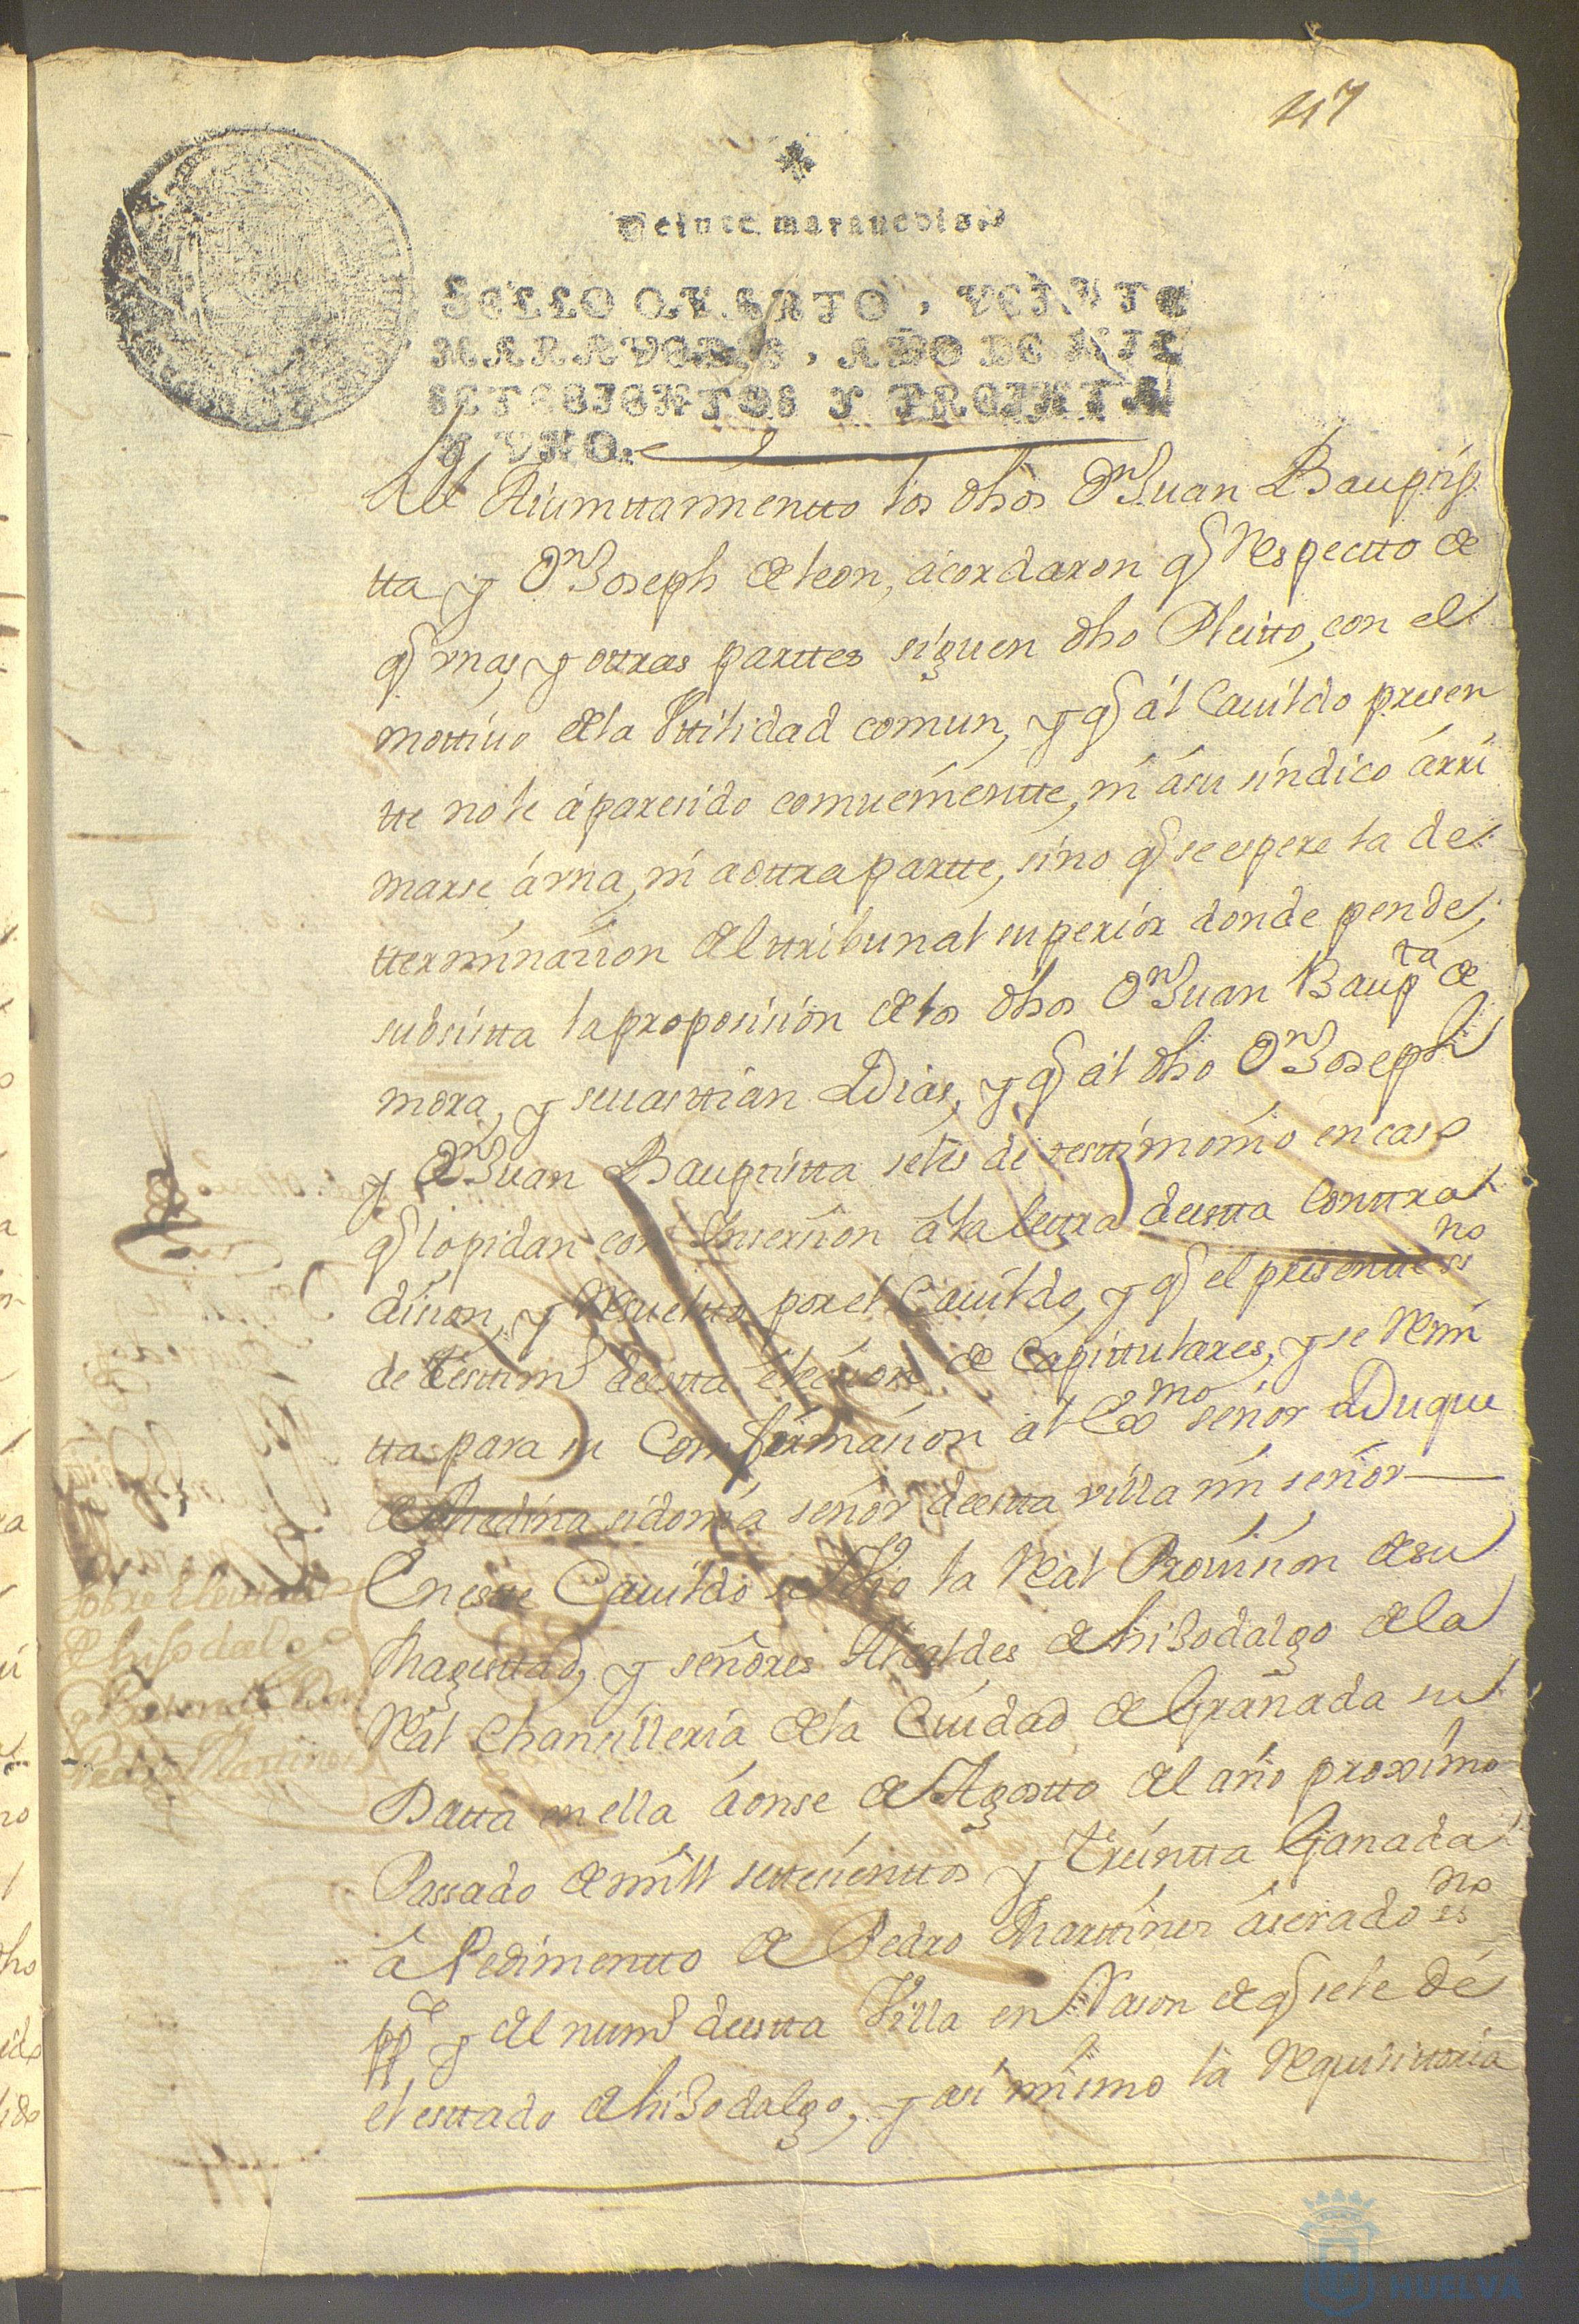 417
Veinte marauedis.
SELLO QVARTO, VEINTE
MARAVEDIS, AÑO DE MIL
SETECIENTOS Y TREINTA
Y VNO.
Al Aiumttarmentto los dhos Dn Juan Baupttis
tta y Dn Joseph de leon, acordaron q Respectto de
q vnas, y ottras parttes siguen dho Pleitto, con el
mottiuo de la Vttilidad comun, y q al Cauildo presen
tte no le a paresido comueniente, ni a su sindico arri
marse a vna, ni a ottra partte, sino q se espere la de
tterminasion del ttribunal superior donde pende,
subsistta la proposision de los dhos Dn Juan Baupta de
mora, y seuasttian Dias, y q al dho Dn Joseph
y Dn Juan Baupttistta seles de testtimonio en caso
q lo pidan con Insersion a la lettra deestta Conttra
dision, y Resueltto por el Cauildo, y q el presentte ssno
de testtimo deestta elecsion de Capittulares, y se Remi
tta para su Comfirmasion al Exmo señor Duque
de Medina sidonia señor deestta villa mi señor
En estte Cauildo se Vio la Real Prouision de su
Magesttad, y señores Alcaldes de hisodalgo de la
Real Chansilleria de la Ciudad de Granada su
Datta en ella a onse de Agostto del año proximo
Passado de mill settecienttos y treintta Ganada
a Pedimentto de Pedro Marttines aserado ssno
ppco y del numo deestta Villa en Rason de q sele dé
el esttado de hisodalgo, y asi mismo la Requisittoria
sobre el esttado
de hisodalgo
q Pretende Dn
Pedro Martines
HUELVA